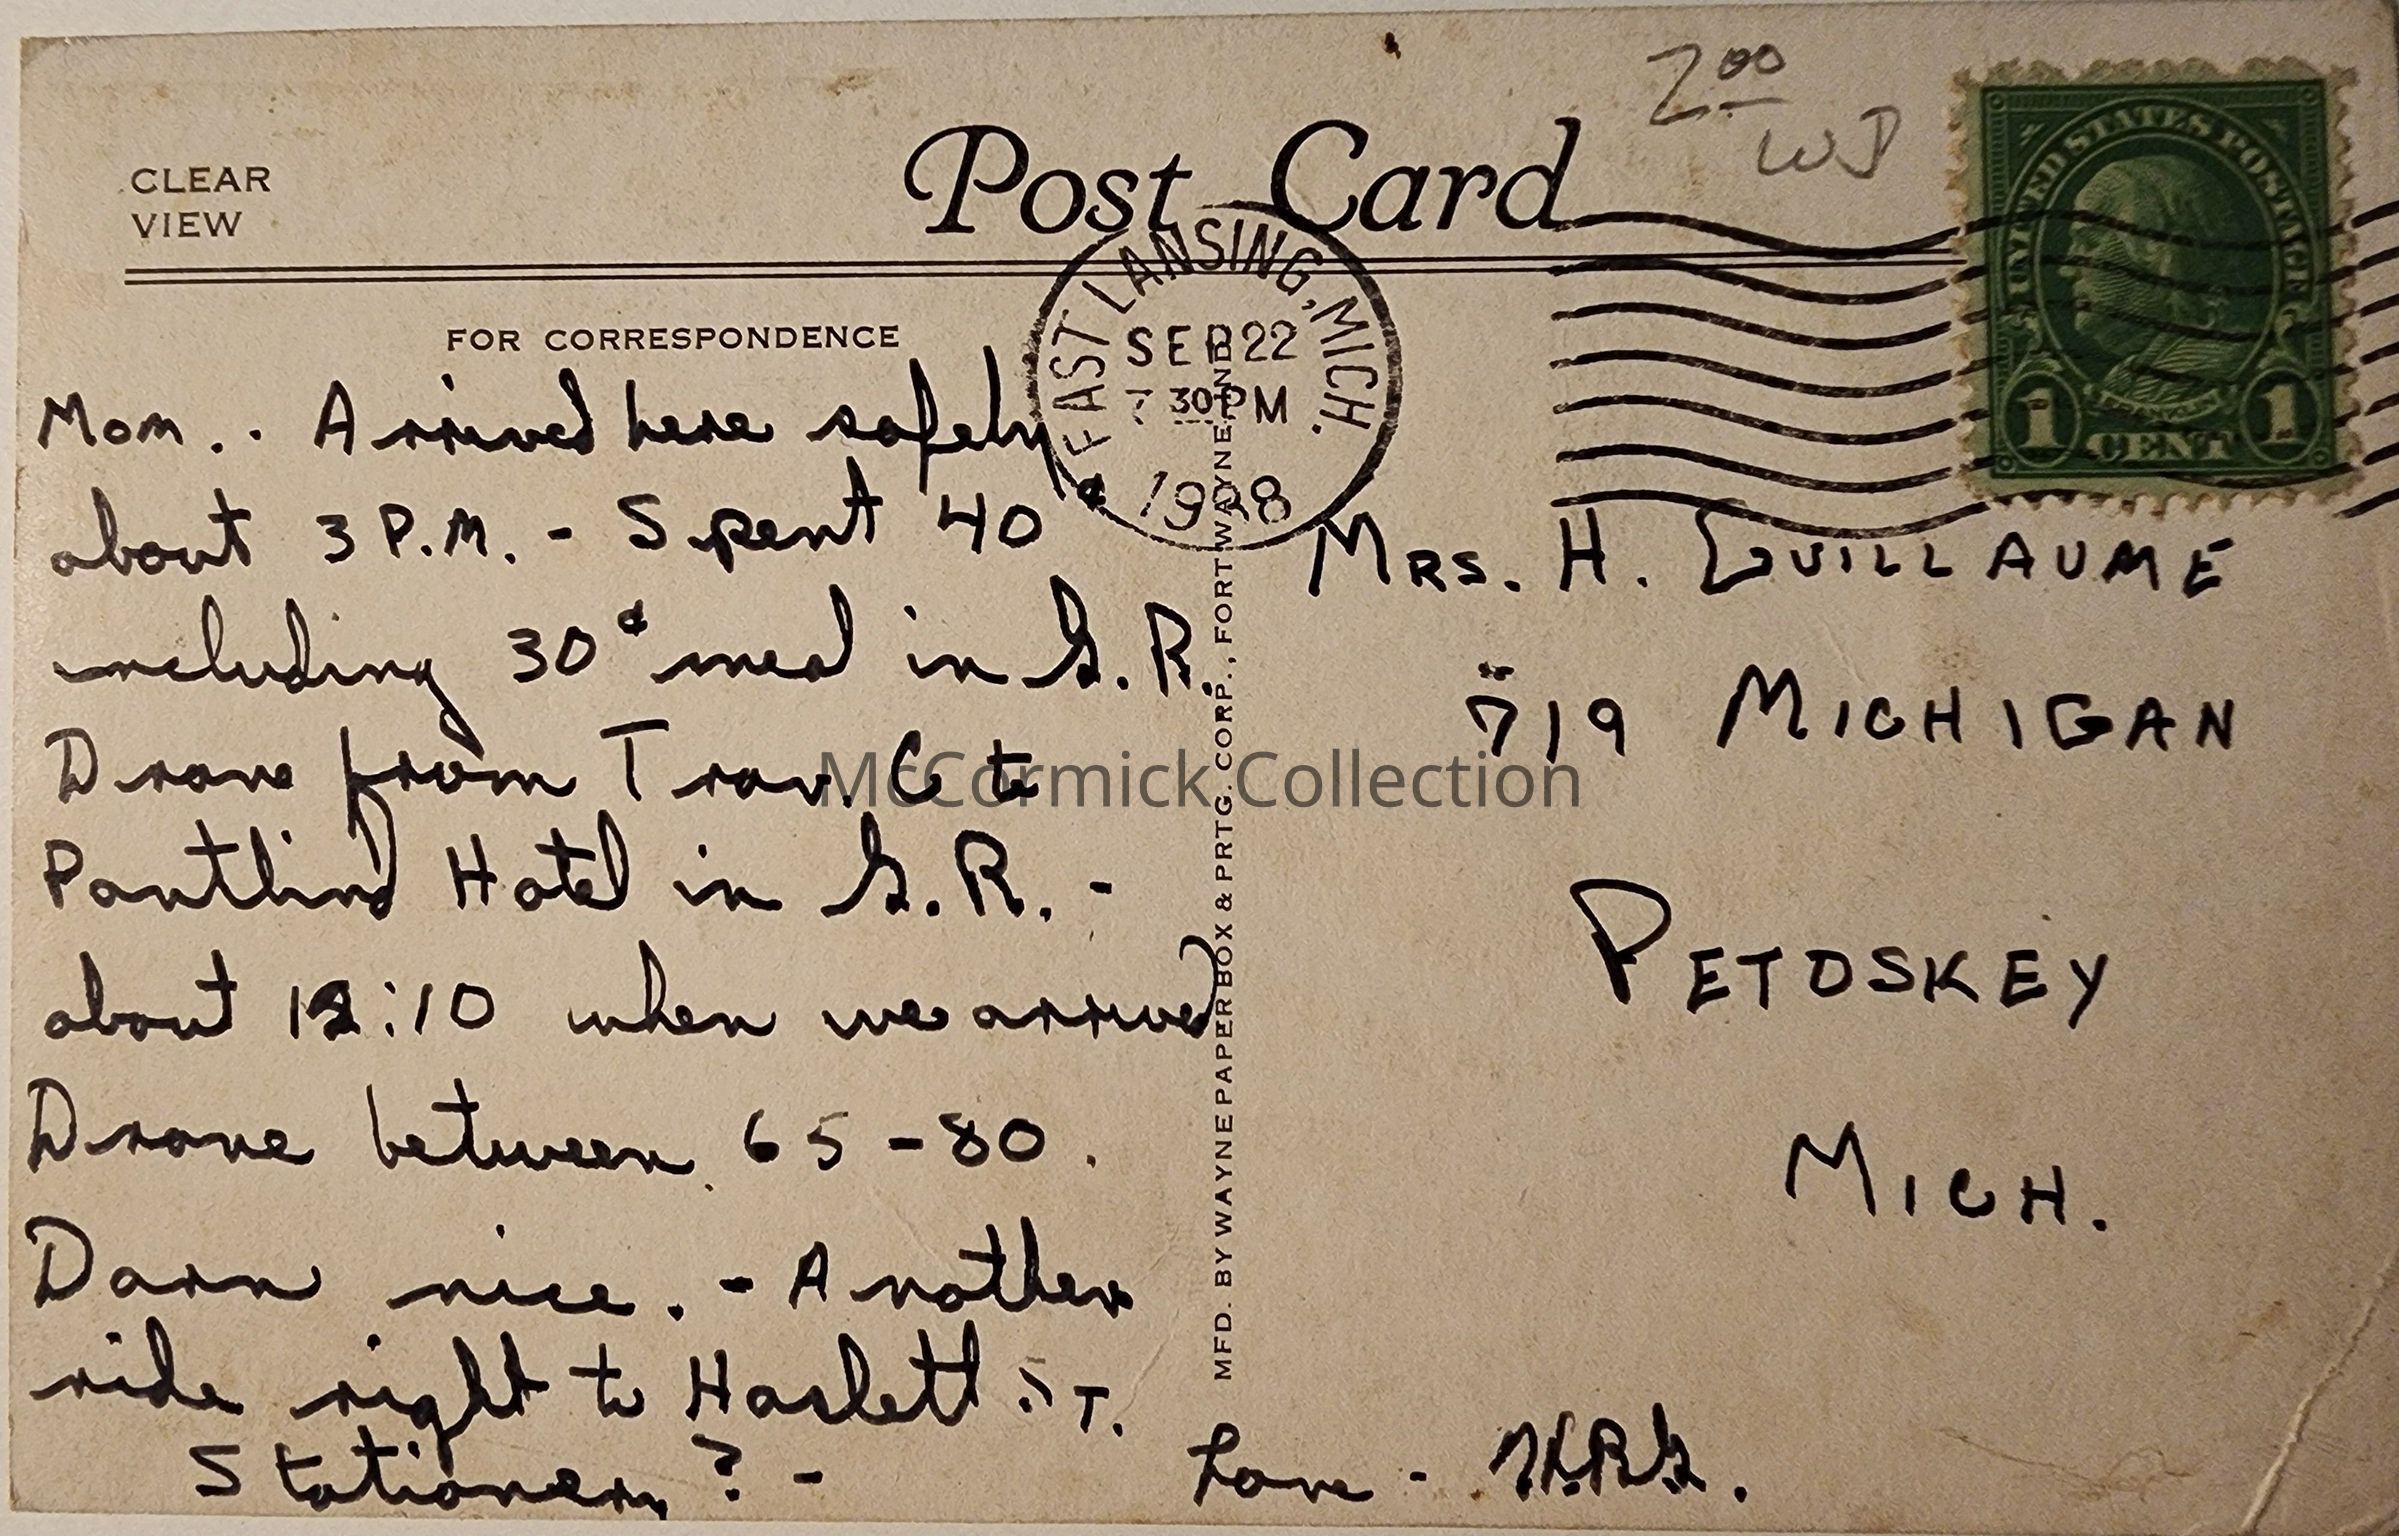 2.00
WJ
CLEAR
VIEW
Post Card
UNITED STATES POSTAGE
FRANKLIN
1 CENT 1
EAST LANSING, MICH.
SEP 22
7 30 PM
FOR CORRESPONDENCE
Mom.. Arrived here safely
about 3 P.M. - Spent 40¢
including 30¢ meal in G.R.
Drove from Trav. C to
Pantlind Hotel in G.R. -
about 12:10 when we arrived
Drove between 65-80.
Darn nice. - Another
ride right to Haslett ST.
Stationery? -
Love - H.R.G.
MRS. H. GUILLAUME
719 MICHIGAN
PETOSKEY
MICH.
MFD. BY WAYNE PAPER BOX & PRTG. CORP., FORT WAYNE, IND.
McCormick Collection